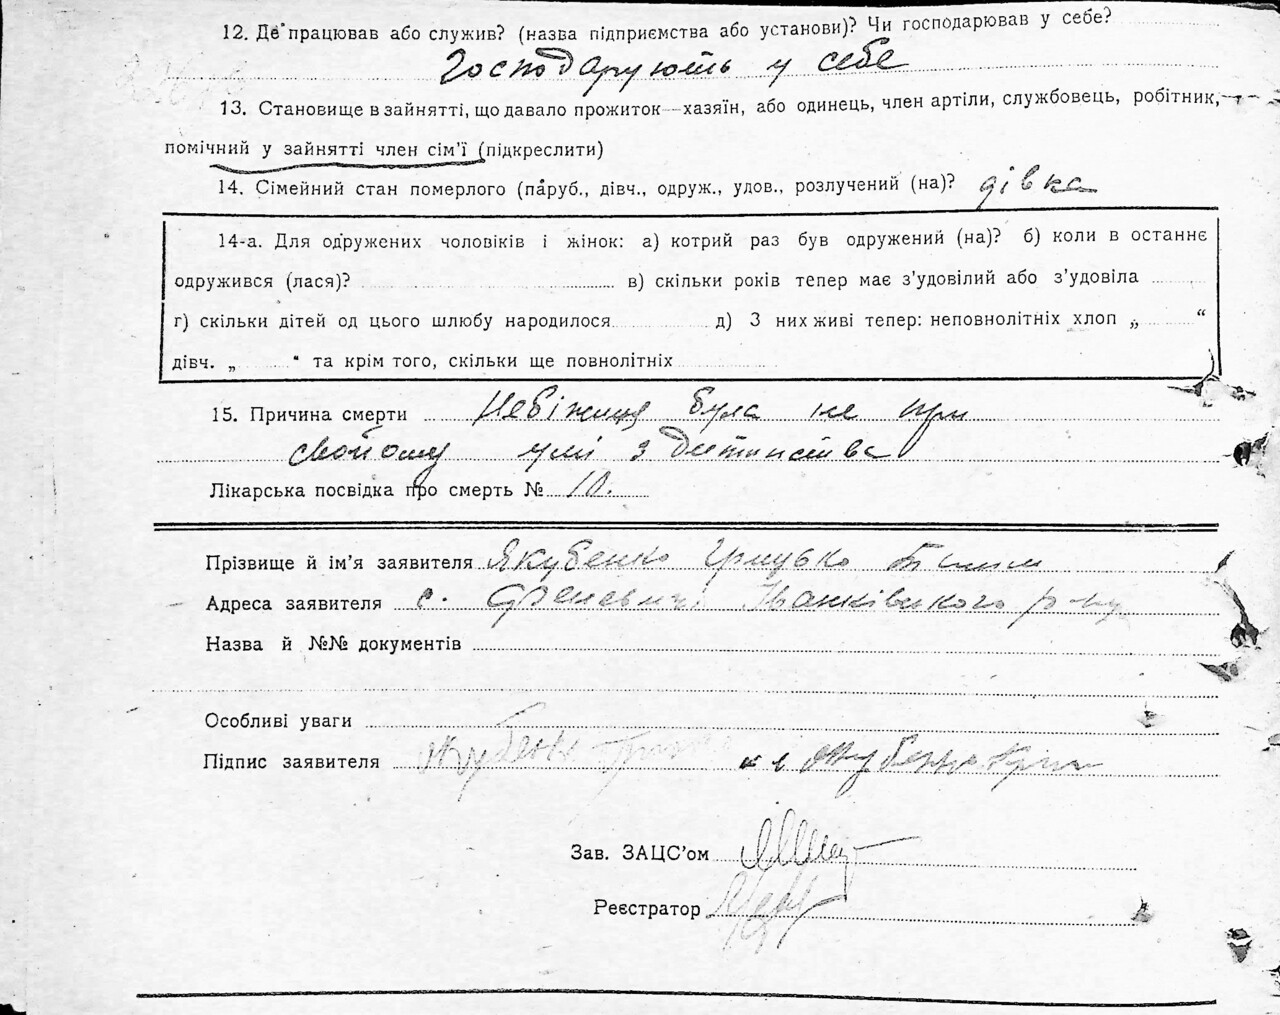 12. Де працював або служив? (назва підприємства або установи)? Чи господарював у себе?
Господарюють у себе
13. Становище в зайнятті, що давало прожиток—хазяїн, або одинець, член артіли, службовець, робітник,
помічний у зайнятті член сім'ї (підкреслити)
14. Сімейний стан померлого (паруб., дівч., одруж., удов., розлучений (на)? дівка
14-а. Для одружених чоловіків і жінок: а) котрий раз був одружений (на)? б) коли в останнє
одружився (лася)? в) скільки років тепер має з'удовілий або з'удовіла
г) скільки дітей од цього шлюбу народилося д) З них живі тепер: неповнолітніх хлоп „ “
дівч. „ “ та крім того, скільки ще повнолітніх
15. Причина смерти Небіжиця була не при
свойому умі з дитинства
Лікарська посвідка про смерть № 10.
Прізвище й ім'я заявителя Якубенко Грицько
Адреса заявителя с. Іванківського р-ну
Назва й №№ документів
Особливі уваги
Підпис заявителя Якубенко
Зав. ЗАЦС'ом
Реєстратор